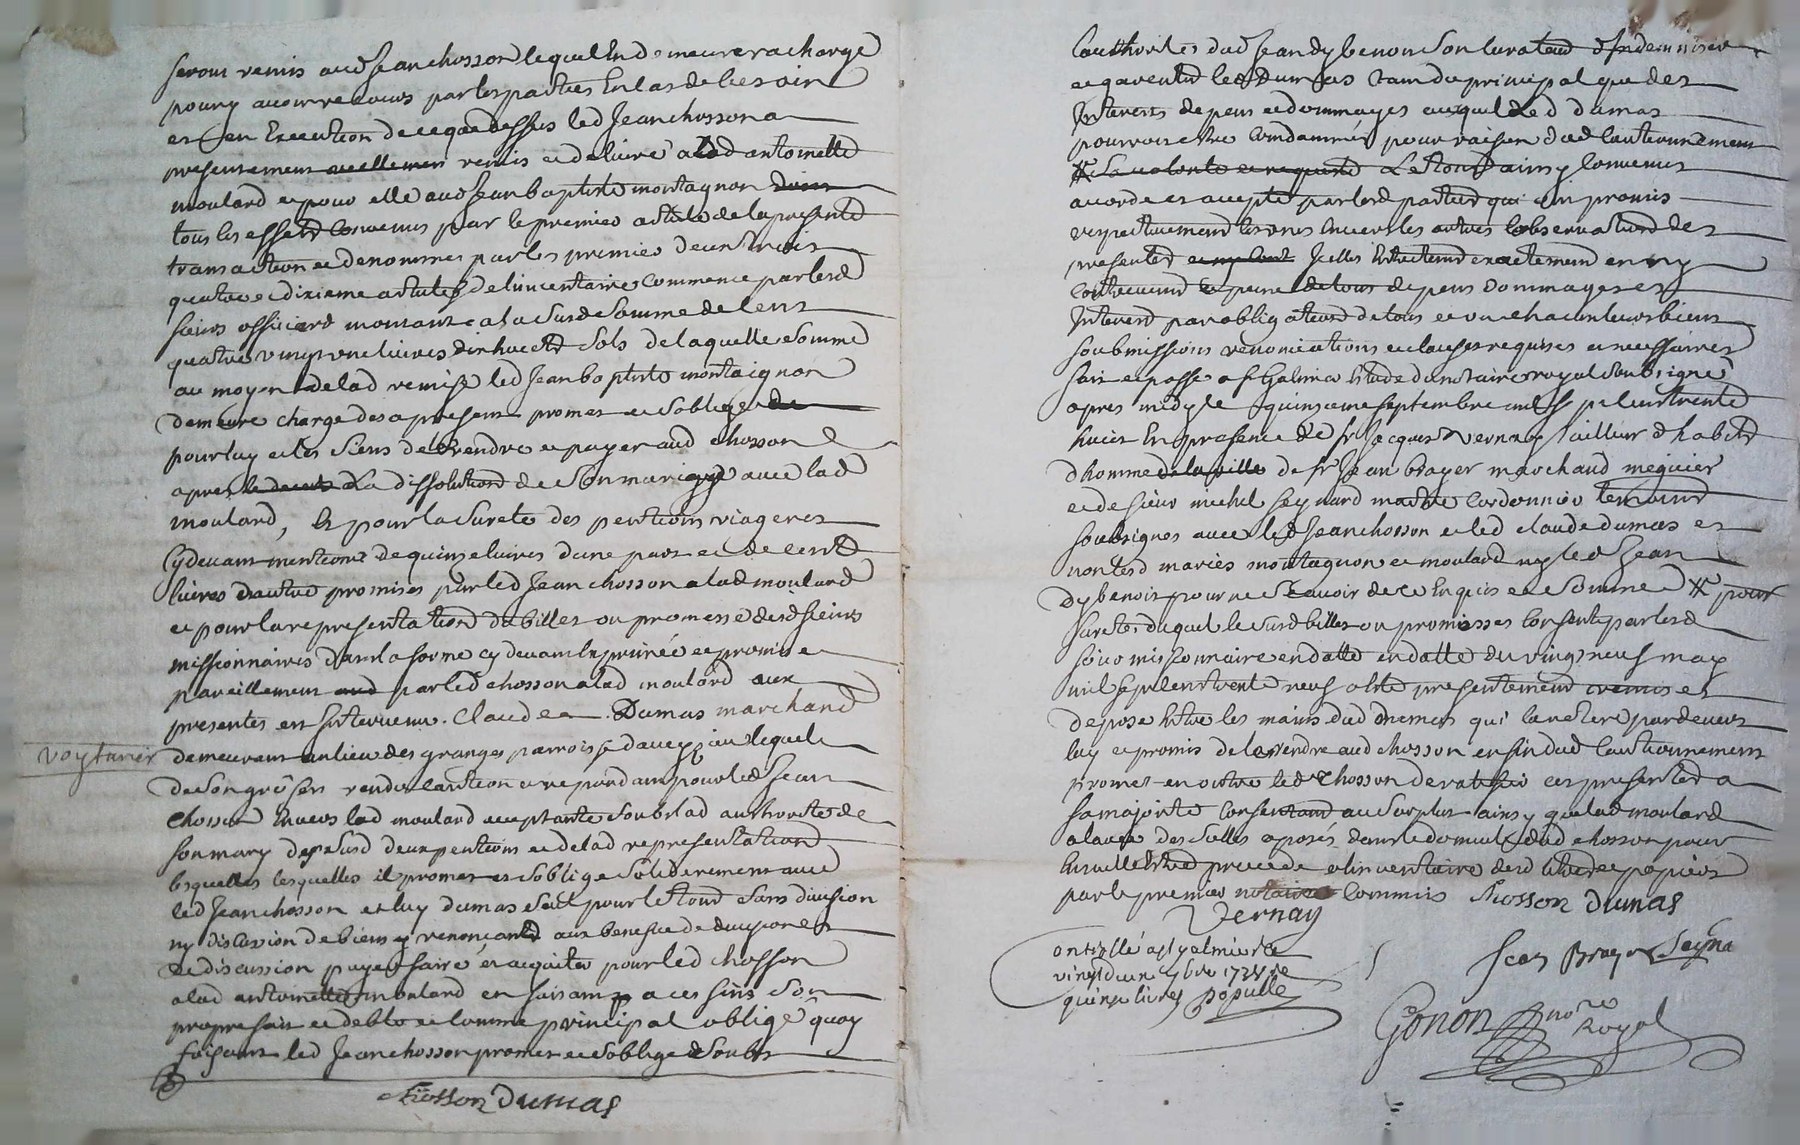 seront remis aud Jean chosson lequel En demeurera chargé
pour y avoir recours par les parties En cas de besoin
et en Execution de ce que dessus led Jean chosson a
presentement reellement remis et delivré a lad antoinette
moulard et pour elle aud Jean baptiste montagnon
tous les effets convenus par le premier article de la presente
transaction et denommes par les premier deux trois
quatre et dixieme articles de linventaire commencé par lesd
sieurs officiers montant a la susd somme de cent
quatre vingt une livres dixhuict sols de laquelle somme
au moyen de lad remise led Jean baptiste montaignon
demeure chargé des a present promet et soblige de
pour luy et les siens de le rendre et payer aud chosson
apres le deces La dissolution de son mariage avec lad
moulard, Et pour la sureté des pentions viageres
Cy devant mentionés de quinse livres dune part et de cent
livres dautre promises par led Jean chosson a lad moulard
et pour la representation du billet ou promesse desd sieurs
missionnaires dans la forme cy devant Exprimée et promise
pareillement par led chosson a lad moulard aux
presentes est Intervenu Claude Dumas marchand
voyturier demeurant au lieu des granges parroisse daveyzieu lequel
de son gré sest rendu caution et repondant pour led Jean
chosson Envers lad moulard acceptante soub lad authorité de
son mary desd susd deux pentions et de lad representation
lesquelles lesquelles il promet et soblige solidairement avec
led Jean chosson et luy dumas seul pour le tout sans division
ny discution de biens y renonçant aux benefice de division et
de discussion payer faire et acquiter pour led chosson
a lad antoinette moulard en faisant a ces fins son
propre fait et debte et comme principal obligé quoy
faisant led Jean chosson promet et soblige soubs
chosson Dumas
lauthorité dud Jean dybenoit son curateur dindemniser
et garentir led Dumas tant du principal que des
Interets depens et dommages auquel led dumas
pourroit etre condamné pour raison dud cautionnement
sa volonté et requeste Le tout ainsy convenu
accordé et accepté par lesd parties qui ont promis
respectivement les unes Envers les autres lobservation des
presentes Icelles Entretenir exactement et ny
contrevenir a peine de tous depens dommages et
Interets par obligations de tous et un chacun leurs biens
soubmissions renonciations et clauses requises et necessaires
fait et passé a st Galmier Etude du notaire royal soubsigné
apres midy le quinsieme septembre mil sept cent trente
huict En presence de sr Jacques Vernay tailleur dhabits
dhomme de la ville de sr Jean brayer marchand megicier
et de sieur michel seynard maitre cordonnier temoins
soubsignes avec led Jean chosson et led claude dumas et
non lesd mariés montagnon et moulard ny led Jean
dybenoit pour ne scavoir de ce Enquis et sommé pour
sureté duquel le susd billet ou promesses consenty par lesd
sieur missionnaire en datte en datte du vingt neuf may
mil sept cent trente neuf a été presentement remis et
deposé Entre les mains dud dumas qui la retiré par devers
luy et promis de le rendre aud chosson en fin dud cautionnement
promet en outre led chosson de ratifier ces presentes a
sa majorité consentant au surplus ainsy que lad moulard
a la levée des scelles aposés dans le domicile dud chosson pour
Ensuitte Etre procedé a linventaire desd titres et papiers
par le premier notaire commis chosson Dumas
Vernay
Controllé a st galmier le
vingt deux 7bre 1738 re
quinse livres Populle
Jean Brayer Seyna
Gonon no.re
Royal